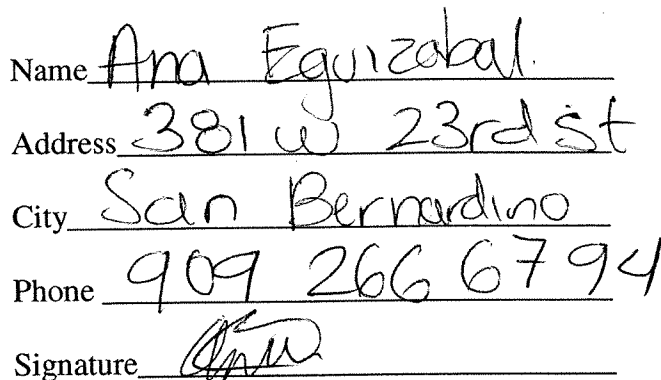 Name Ana Eguizabal.
Address 381 w 23rd st
City San Bernardino
Phone 909 266 6794
Signature